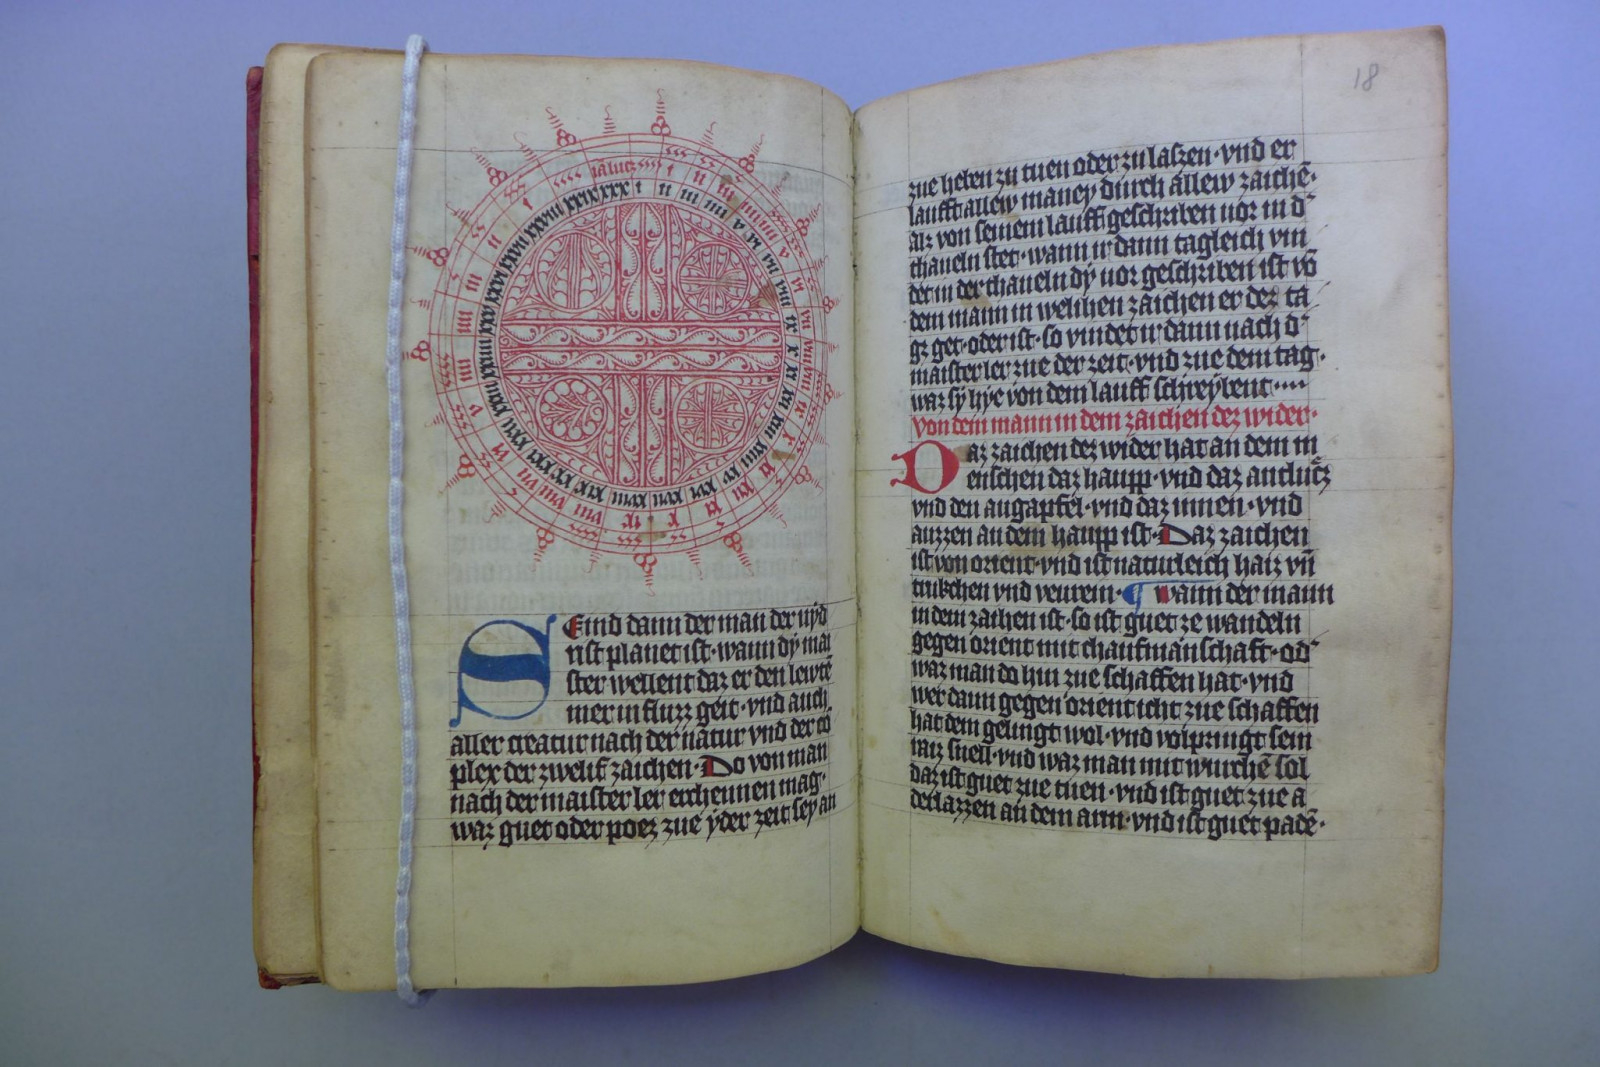 Seind dann der man der nyd
rist planet ist · wann dy mai
ster wellent daz er den lewtē
mer influzz geit · vnd auch
aller creatur nach der natur vnd der cō
plex der zwelif zaichen · Do von man
nach der maister ler erchennen mag ·
waz guet oder poez zue yder zeit sey an
18
zue heben zu tuen oder zu laszen · vnd er
laufft allew maney durch allew zaichē ·
alz von seinem lauff geschriben uor in d'
thaueln stet · wann ir dann tagleich vin
det in der thaueln dÿ uor geschriben ist vō
dem mann in welihen zaichen er dez ta
gz get · oder ist · so vindet ir dann nach d'
maister ler zue der zeit · vnd zue dem tag ·
waz sÿ hye von dem lauff schreybent ····
von dem mann in dem zaichen dez wider ·
Daz zaichen dez wider hat an dem m
enschen daz haupp · vnd daz antlucz
vnd den augapfel · vnd daz innen · vnd
auzzen an dem haupp ist · Daz zaichen
ist von orient · vnd ist natuleich haiz vn̄
trukchen vnd veurein · ¶ wann der mann
in dem zaihen ist · so ist guet ze wandeln
gegen orient mit chaufmanschaft · od'
waz man do hin zue schaffen hat · vnd
wer dann gegen orient icht zue schaffen
hat dem gelingt wol · vnd volpringt sein
raiz snell · vnd waz man mit wurchē sol
daz ist guet zue tuen · vnd ist guet zue a
derlazzen an dem arm · vnd ist guet padē ·